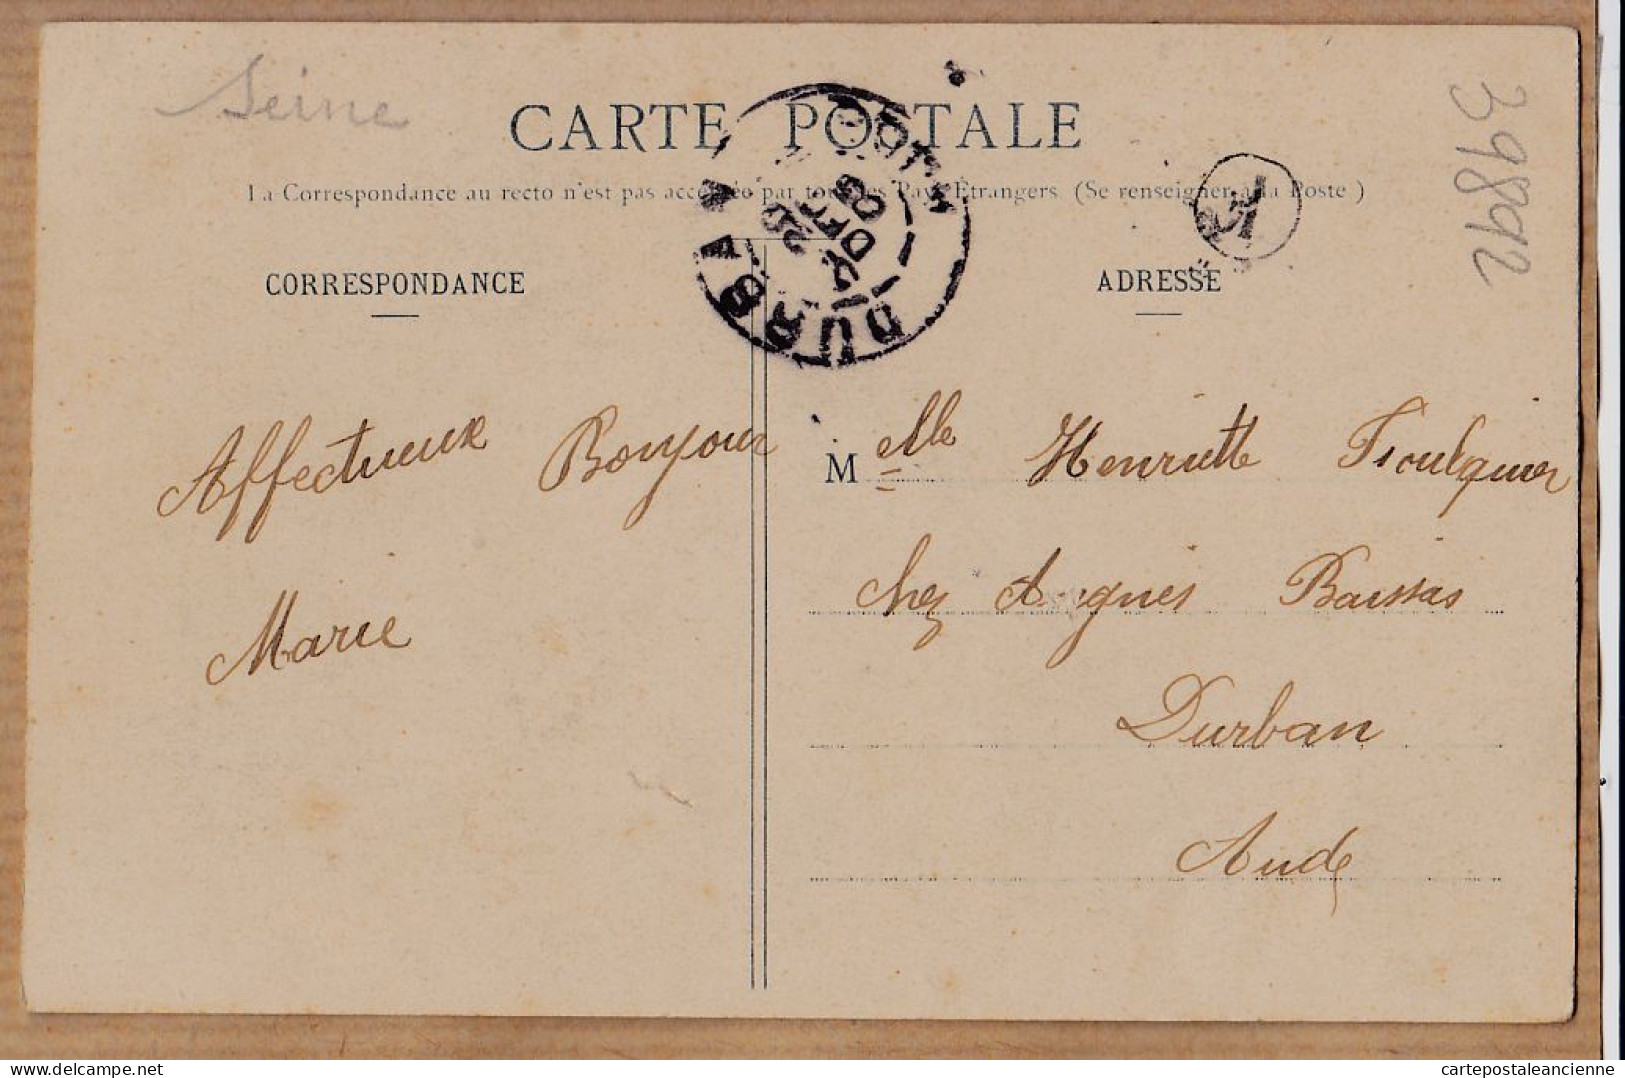 Seine
39892
CARTE POSTALE
La Correspondance au recto n'est pas acceptée par tous les Pays Étrangers (Se renseigner à la Poste)
DURBAN
CORRESPONDANCE
ADRESSE
Affectueux Bonjour
Marie
Melle Henriette
chez Agnès Baissas
Durban
Aude
cartepostaleancienne